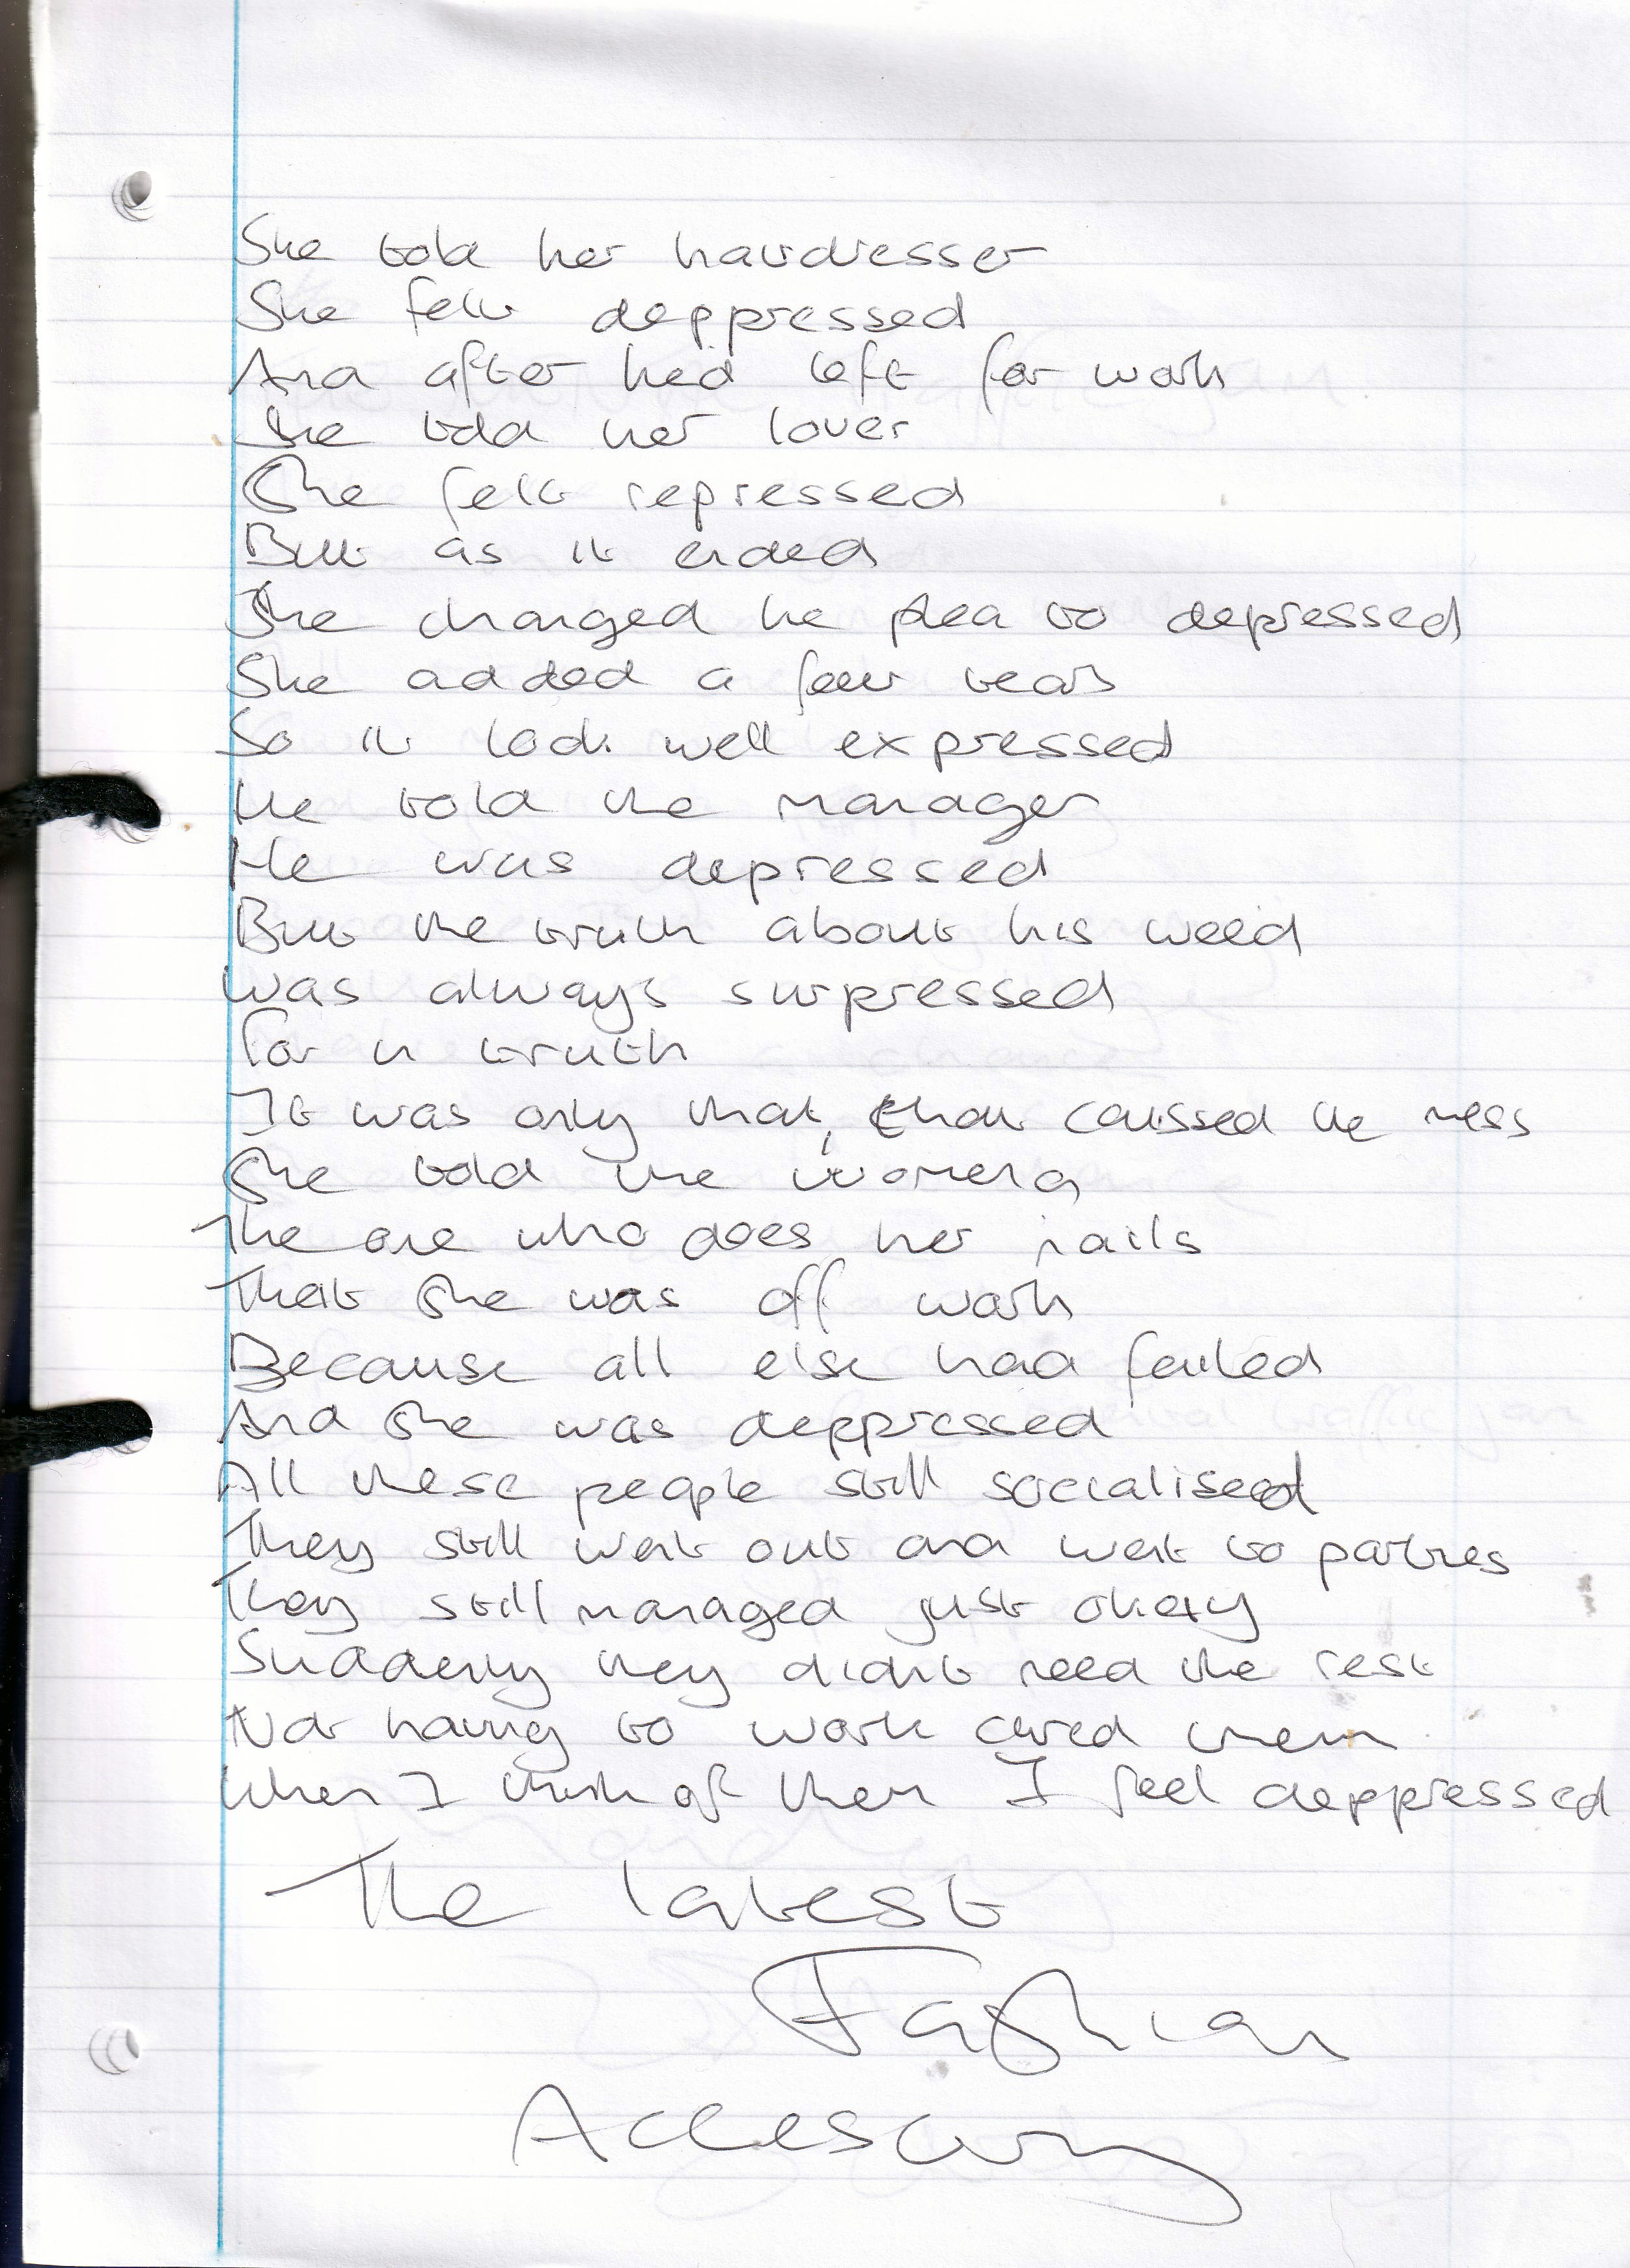 She told her hairdresser
She felt deppressed
And after he'd left for work
She told her lover
She felt repressed
But as it ended
She changed he plea to depressed
She added a few tears
So it look well expressed
He told the manager
He was depressed
But the truth about his weed
was always surpressed
For in truth
It was only that, that caussed the mess
She told the women
The one who does her nails
That she was off work
Because all else had failed
And she was deppressed
All these people still socialised
They still went out and went to parties
They still managed just okay
Suddenly they didnt need the rest
Not having to work cured them
When I think of them I feel deppressed
The latest
Fashion
Accesory